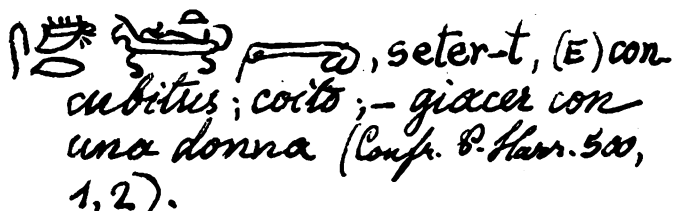 , seter-t, (E) con-
cubitus; coito; – giacer con
una donna (Confr. P. Harr. 500,
1, 2).